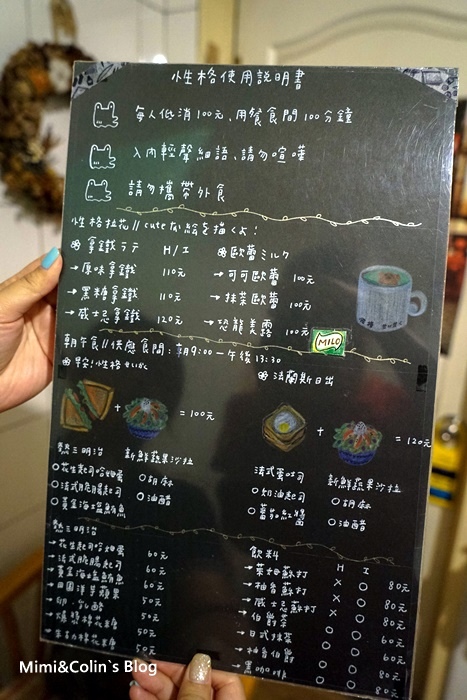 性格使用說明書
每人低消100元、用餐食間100分鐘
入內輕聲細語、請勿喧嘩
請勿攜帶外食
性格拉花 // cuteな絵を描くよ!
拿鐵ラテ H / I
→ 原味拿鐵 110元
→ 黑糖拿鐵 110元
→ 威士忌拿鐵 120元
歐蕾ミルク
→ 可可歐蕾 100元
→ 抹茶歐蕾 100元
→ 恐龍美露 100元
MILO
朝午食 // 供應食間:朝9:00-午後13:30
早安!性格
法蘭斯日出
+ = 100元
+ = 120元
熱三明治
花生起司哈姆蛋
法式脆腸起司
黃金海鹽鮪魚
新鮮蔬果沙拉
胡麻
油醋
法式蛋吐司
奶油起司
新鮮蔬果沙拉
胡麻
油醋
熱三明治
→ 花生起司哈姆蛋 60元
→ 法式脆腸起司 60元
→ 黃金海鹽鮪魚 60元
50元
50元
50元
飲料 H I
→ 萊姆蘇打 X O 80元
→ 柚香蘇打 X O 80元
→ 威士忌蘇打 X O 80元
→ 伯爵茶
→ 日式抹茶
→ 柚香伯爵
→ 黑咖啡
Mimi&Colin`s Blog